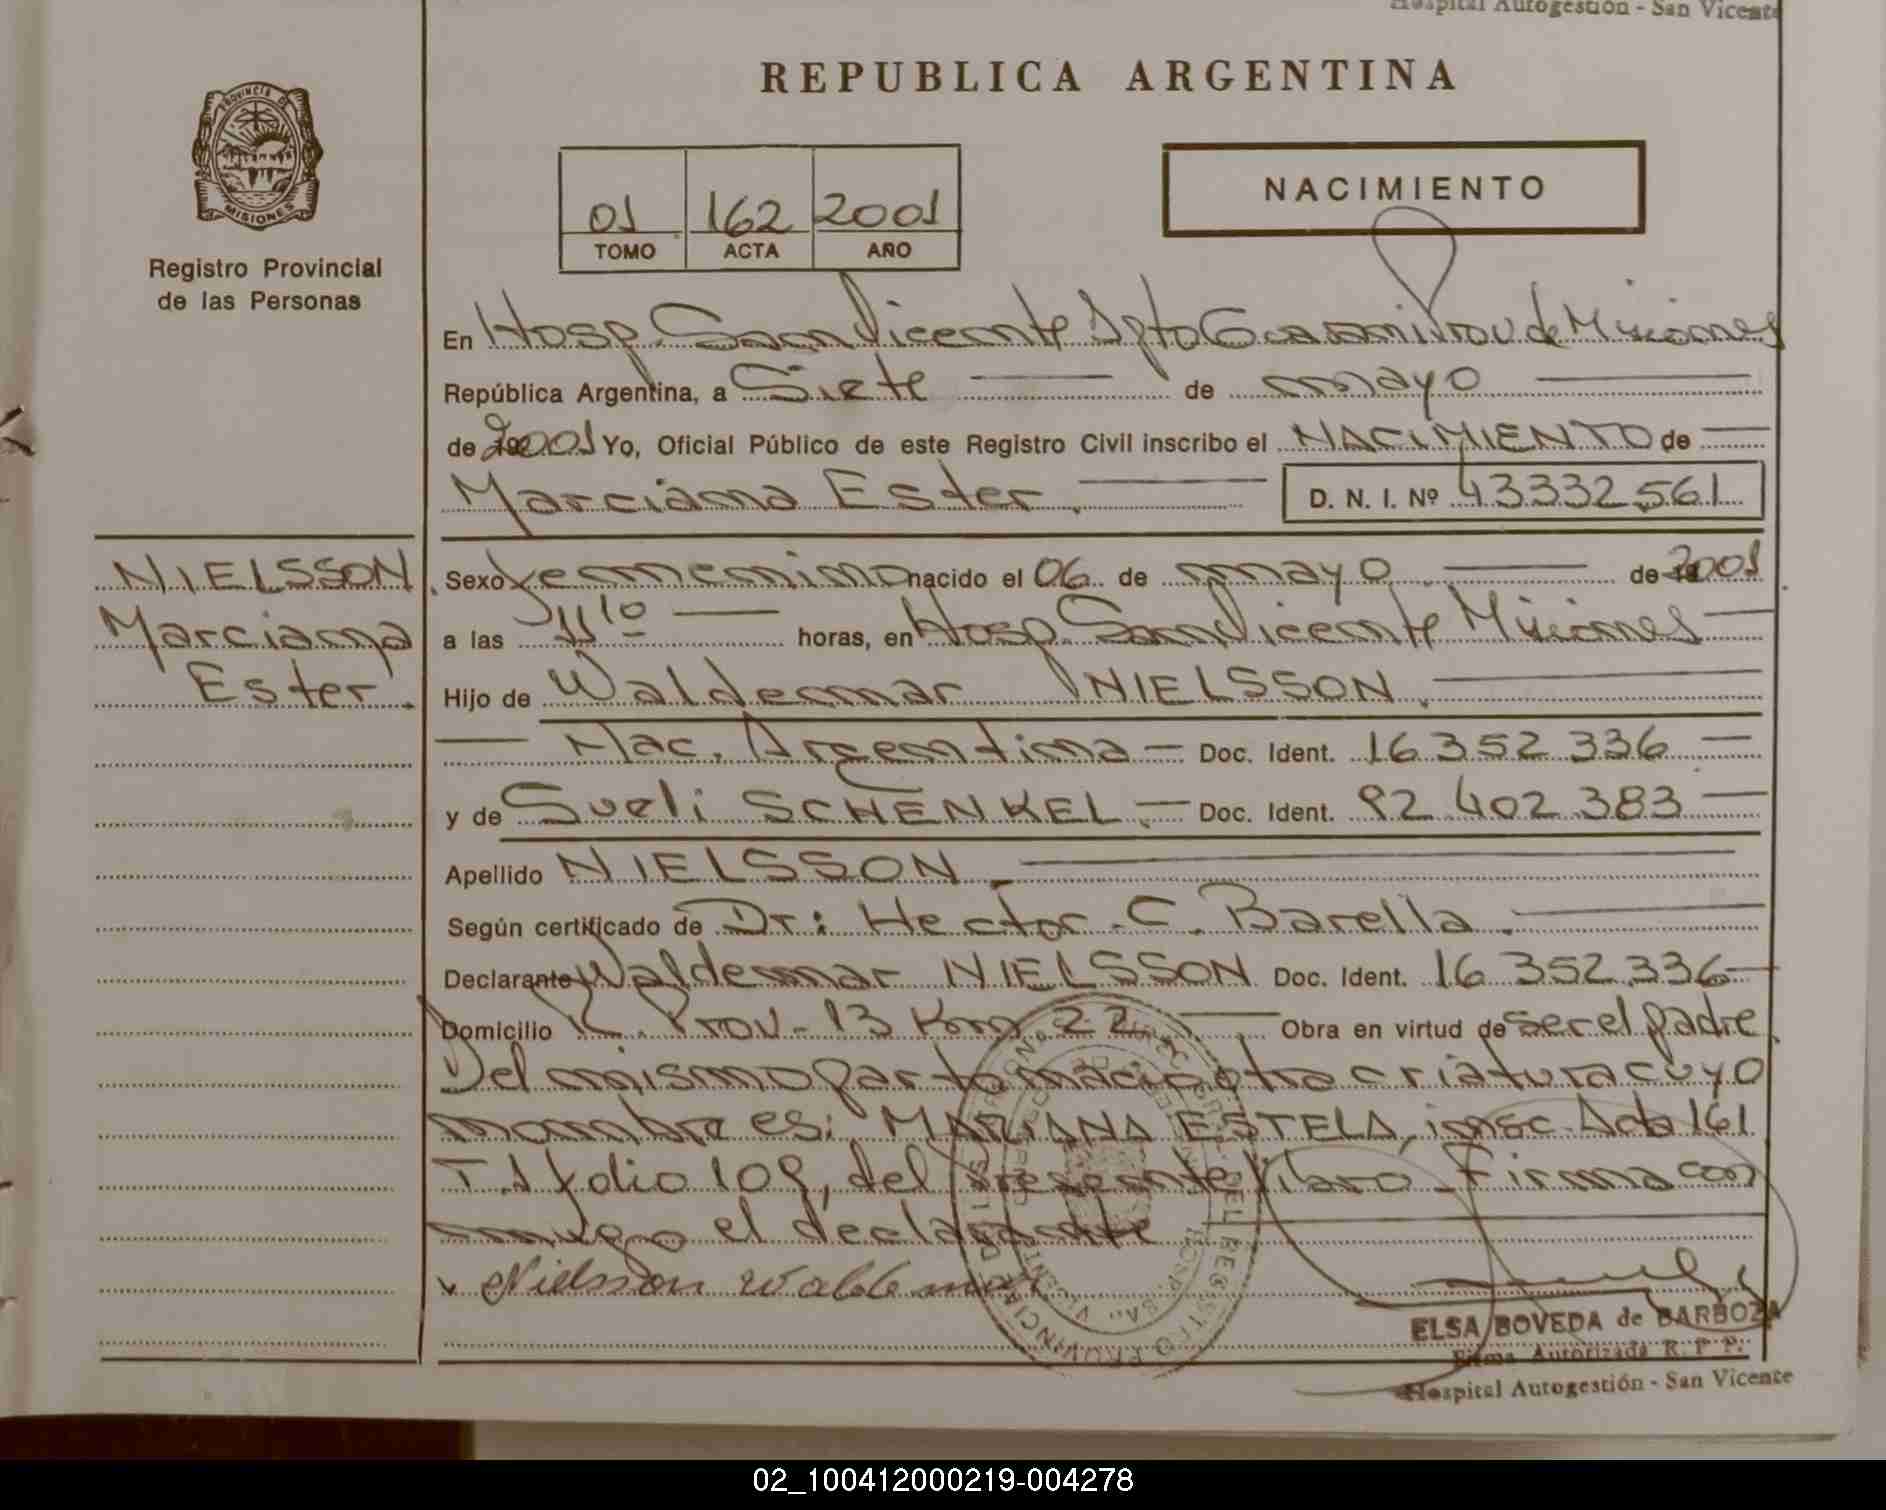 Hospital Autogestión - San Vicente
REPUBLICA ARGENTINA
PROVINCIA DE
MISIONES
Registro Provincial
de las Personas
01 162 2001
TOMO ACTA AÑO
NACIMIENTO
En Hosp. San Vicente Dpto Guarani Prov. de Misiones
República Argentina, a Siete de mayo
de 2001 Yo, Oficial Público de este Registro Civil inscribo el NACIMIENTO de
Marciana Ester. D. N. I. Nº 43332.561
NIELSSON
Marciana
Ester.
Sexo femenino nacido el 06 de mayo de 2001
a las 11 10 horas, en Hosp. San Vicente Misiones
Hijo de Waldemar NIELSSON.
Nac. Argentina Doc. Ident. 16.352.336
y de Sueli SCHENKEL. Doc. Ident. 92.402.383
Apellido NIELSSON.
Según certificado de Dr: Hector C. Barella.
Declarante Waldemar NIELSSON Doc. Ident. 16.352.336
Domicilio R. Prov. 13 Km 22 Obra en virtud de ser el padre.
Del mismo parto nacio otra criatura cuyo
nombre es: MARIANA ESTELA, insc. Acta 161
T.1 folio 109, del presente libro. Firma con
migo el declarante
Nielsson Waldemar
ELSA BOVEDA de BARBOZA
Firma Autorizada R. P. P.
Hospital Autogestión - San Vicente
02_100412000219-004278